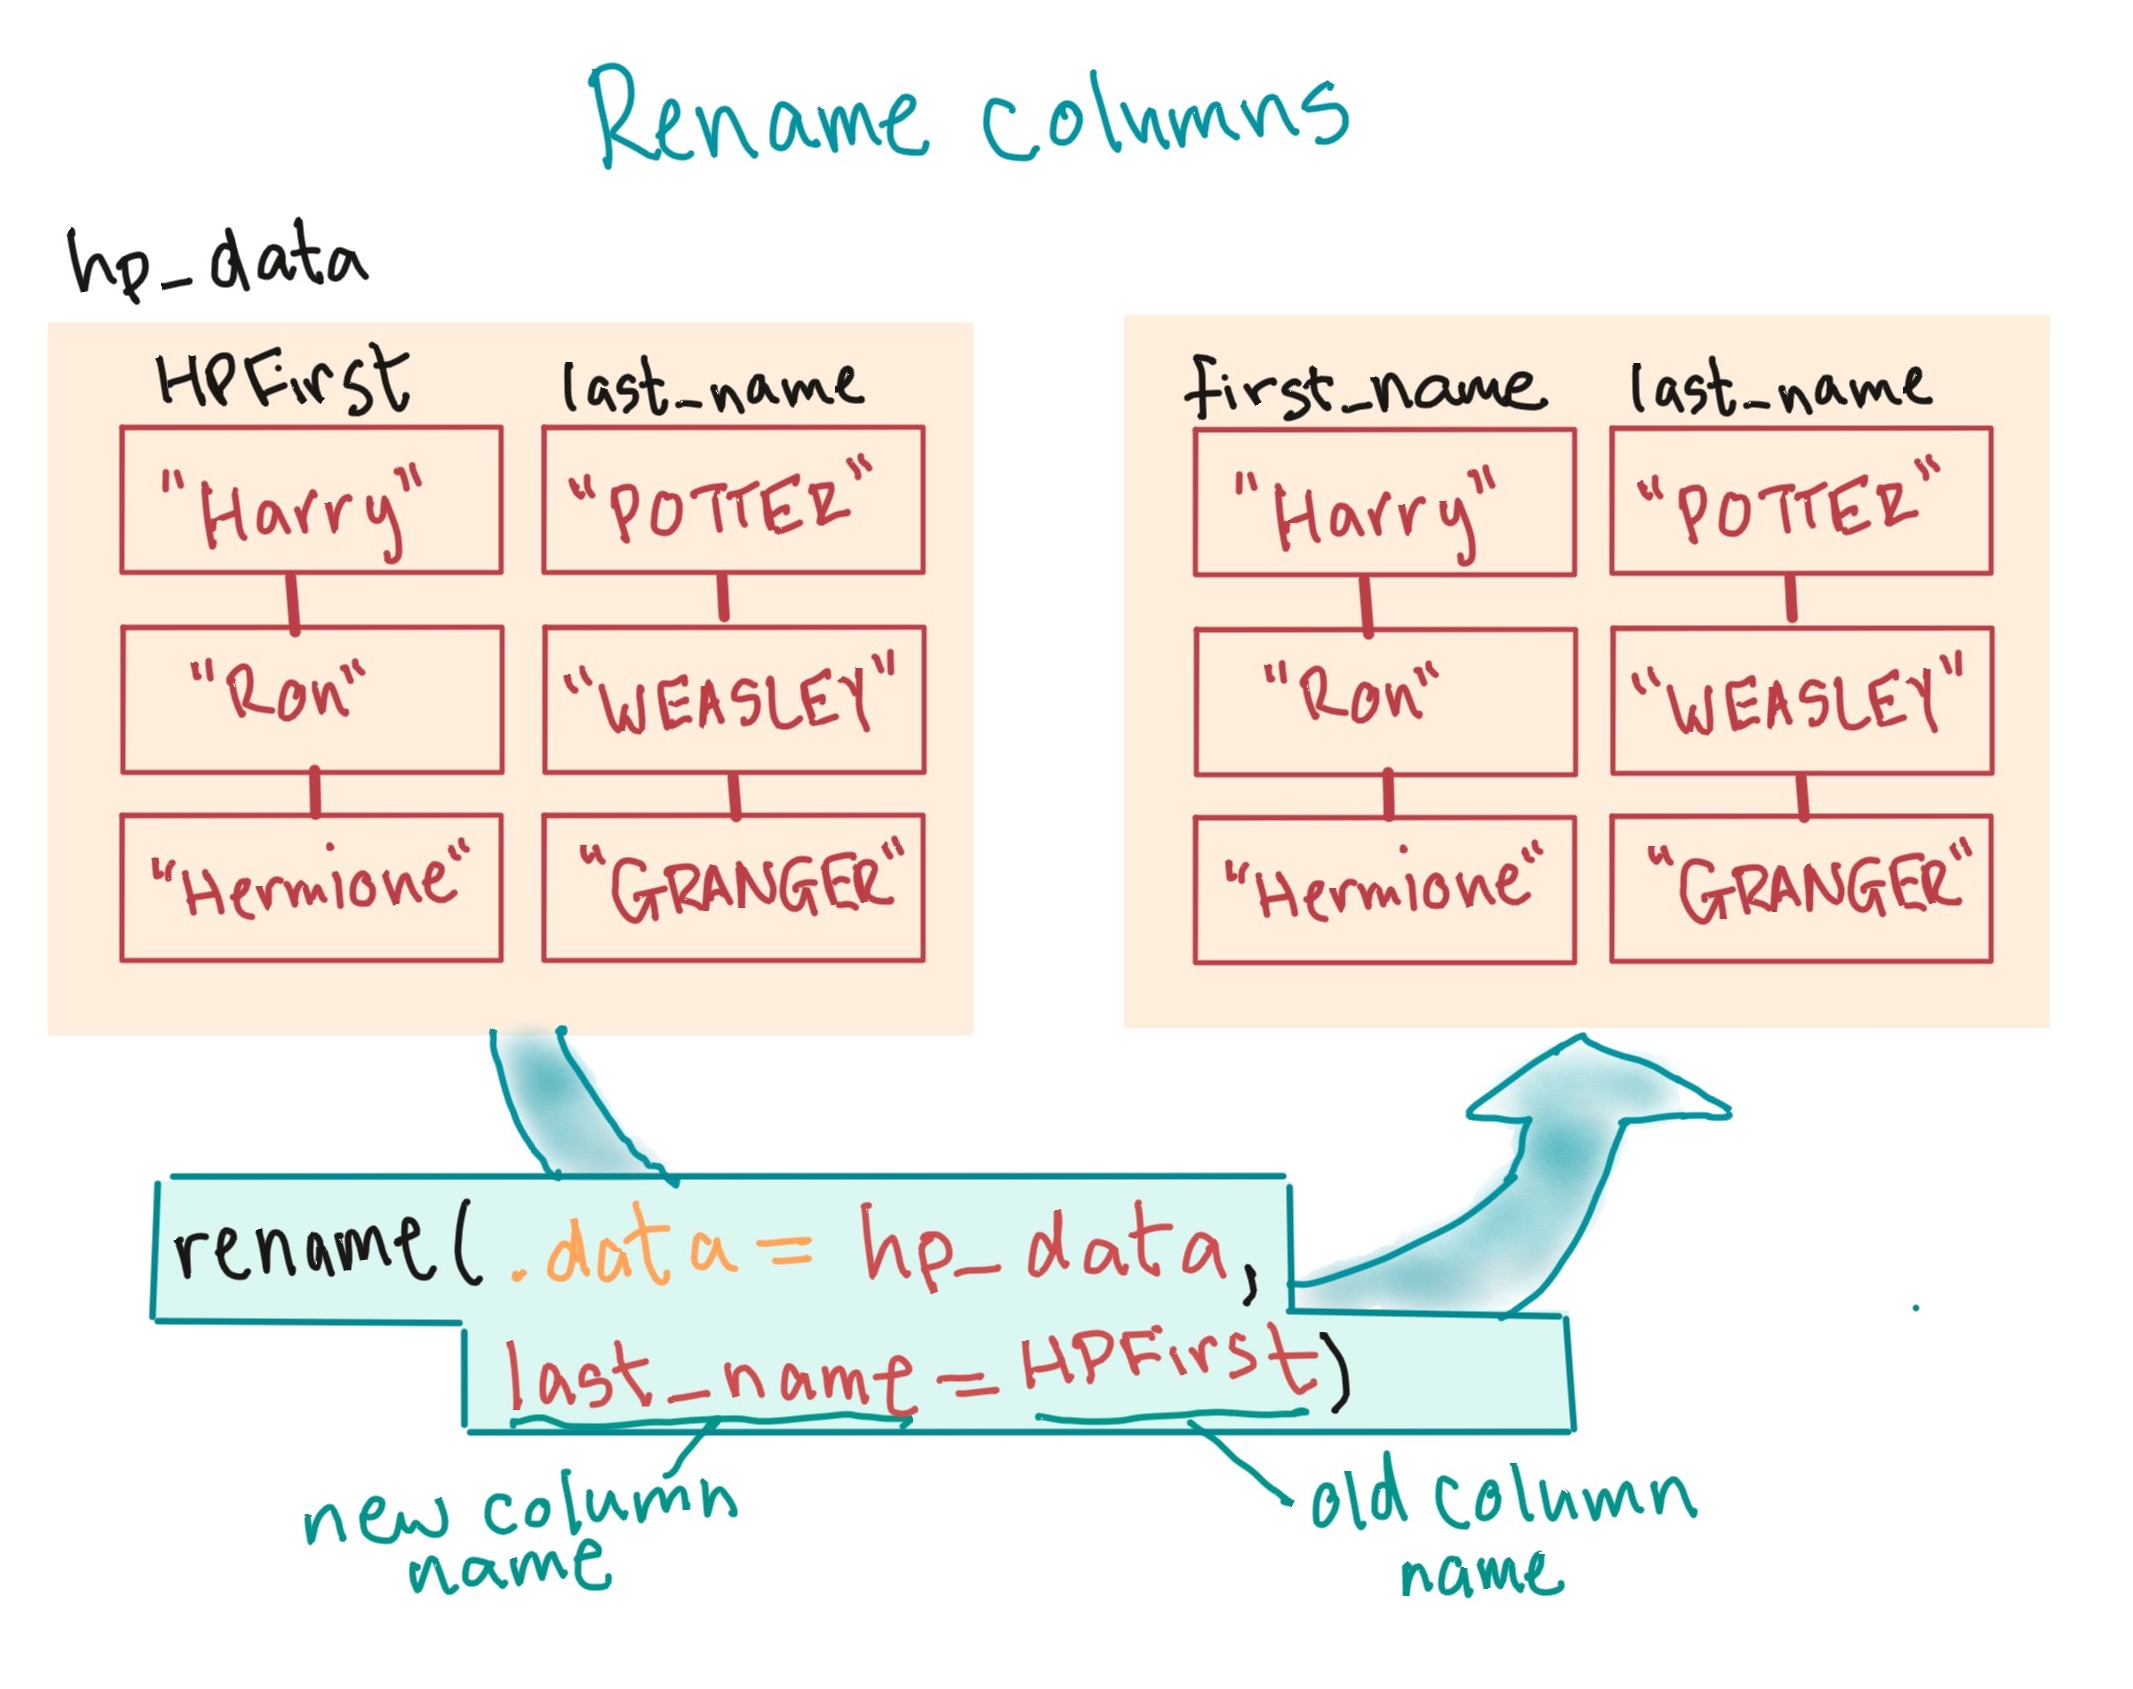 Rename columns
hp_data
HPFirst last_name
"Harry" "POTTER"
"Ron" "WEASLEY"
"Hermione" "GRANGER"
first_name last_name
"Harry" "POTTER"
"Ron" "WEASLEY"
"Hermione" "GRANGER"
rename(.data = hp_data,
last_name = HPFirst)
new column
name
old column
name